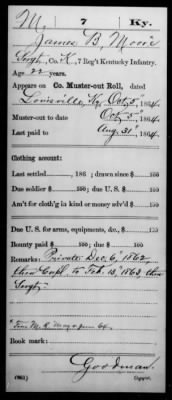 M, 7 Ky.
James B Moore
Sergt, Co. K, 7 Reg't Kentucky Infantry.
Age 22 years.
Appears on Co. Muster-out Roll, dated
Louisville, Ky, Oct 5, 1864.
Muster-out to date Oct 5, 1864.
Last paid to Aug. 31, 1864.
Clothing account:
Last settled , 186 ; drawn since $ 100
Due soldier $ 100; due U. S. $ 100
Am't for cloth'g in kind or money adv'd $ 100
Due U. S. for arms, equipments, &c., $ 100
Bounty paid $ 100; due $ 100
Remarks: Private Dec. 6, 1862,
then Corpl to Feb. 13, 1863, then
Sergt
Book mark:
Goodman
Copyist.